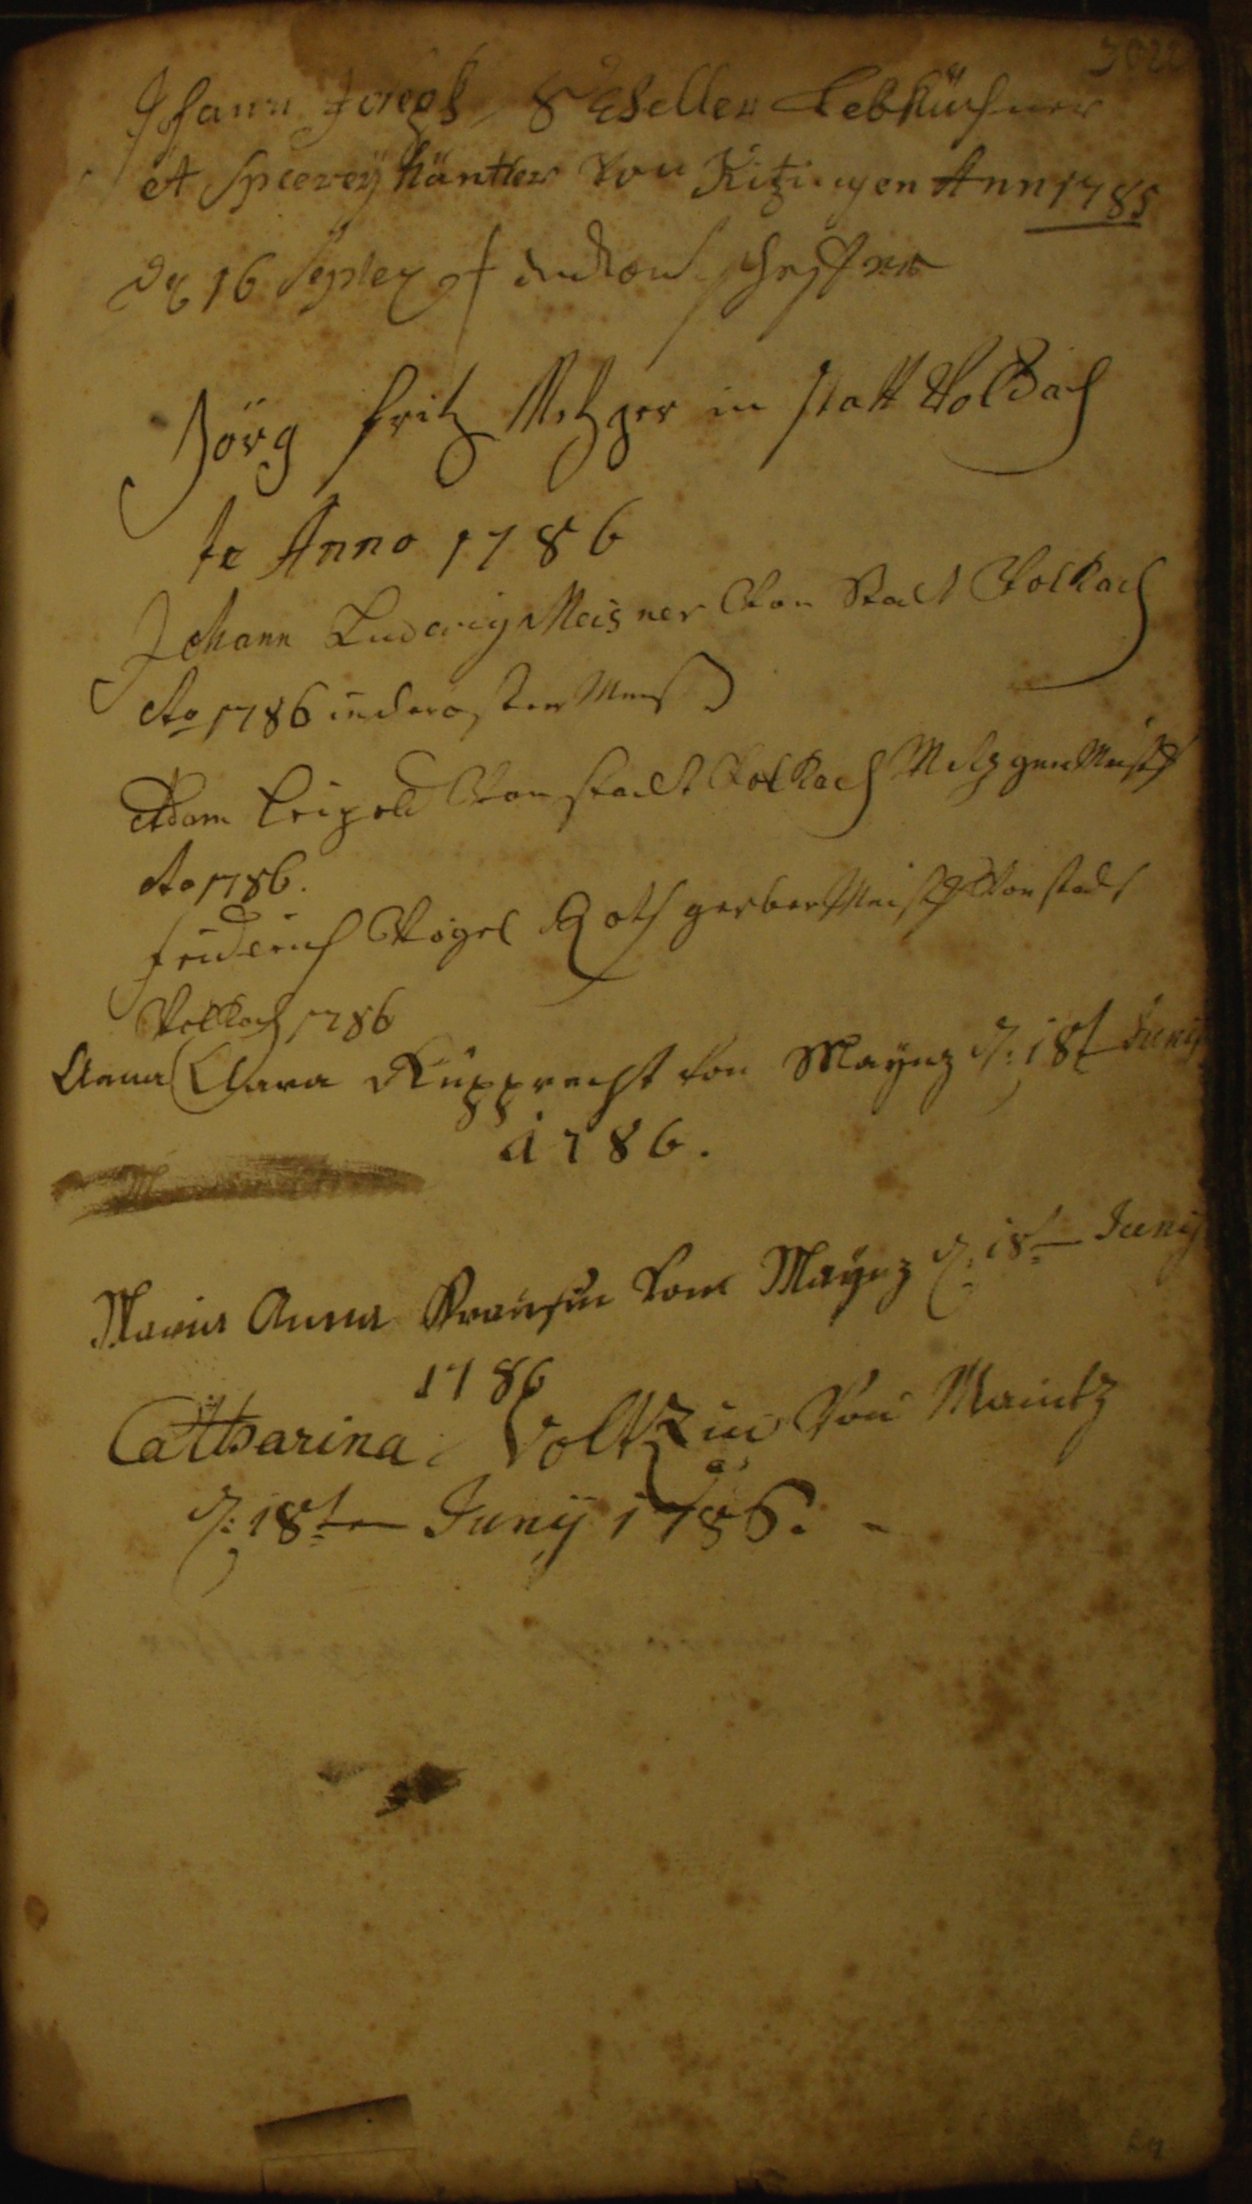 Johann Joseph Scheller Lebküchner
et Specereÿ häntler von Kitzingen Ann 1785
16 Septer
Jörg fritz Metzger in statt Volckach
te Anno 1786
Johann Ludwig Meisner Von Stadt Volkach
Ao 1786 in der
Adam Leipold Von stadt Volkach Metzger Meistr
Ao 1786.
friderich Vogel Roth gerber Meistr Von stadt
Volkach 1786
Anna Clara Rupprecht von Maÿnz d: 18t Junÿ
1786.
Maria Anna von Maÿnz d: 18t Junÿ
1786
Catharina Voltzin Von Maintz
d: 18ten Junÿ 1786.